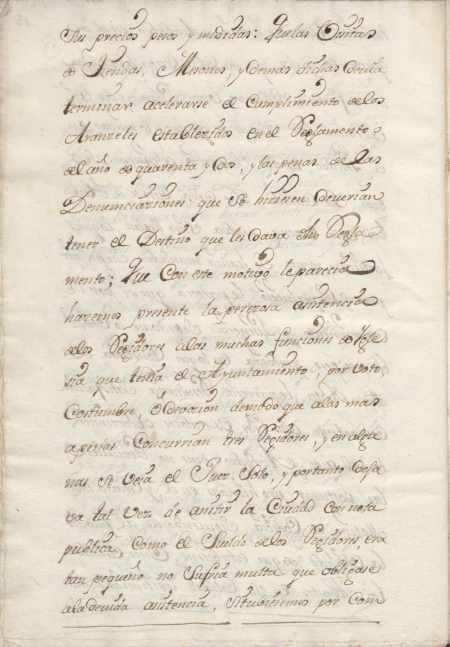 sus precios pesos y medidas: Que las Visitas
de Tiendas, Mesones, y demas dichas devia
terminar acelerarse el cumplimiento de los
Aranzeles establezidos en el Reglamento
del año de quarenta y dos, y las penas de las
Denunciaziones que se hizieren deverian
tener el Destino que les dava dho Regla
mento; Que con este motivo le parecia
hazernos presente la perezosa asistencia
de los Regidores a las muchas funciones de Igle
sia que tenia el Ayuntamiento, por voto
Costumbre, ó devocion de modo que a las mas
apenas concurrian tres Regidores, y en alga
nas se veia el Juez solo, y por tanto dexa
va tal vez de asistir la Ciudad con nota
publica, como el sueldo de los Regidores, era
tan pequeño no sufria multa que obligase
a la devida asistencia, stubiesemos por com